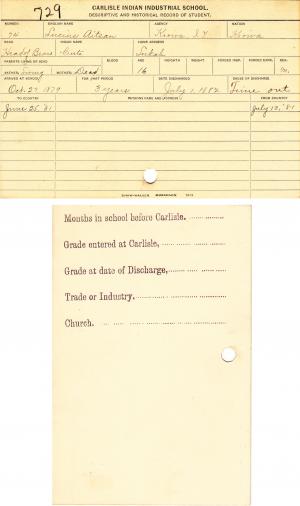 729
CARLISLE INDIAN INDUSTRIAL SCHOOL.
DESCRIPTIVE AND HISTORICAL RECORD OF STUDENT.
NUMBER ENGLISH NAME AGENCY NATION
74 Lucius Aitsan Kiowa, I.T. Kiowa
BAND INDIAN NAME HOME ADDRESS
PARENTS LIVING OR DEAD BLOOD AGE HEIGHT WEIGHT FORCED INSP. FORCED EXPR. SEX
FATHER Living MOTHER Dead 16 M.
ARRIVED AT SCHOOL FOR WHAT PERIOD DATE DISCHARGED CAUSE OF DISCHARGE
Oct. 27 1879 3 years July 1, 1882 Time out
TO COUNTRY PATRONS NAME AND ADDRESS FROM COUNTRY
June 25, '81 July 12, '81
Months in school before Carlisle.
Grade entered at Carlisle,
Grade at date of Discharge,
Trade or Industry.
Church.